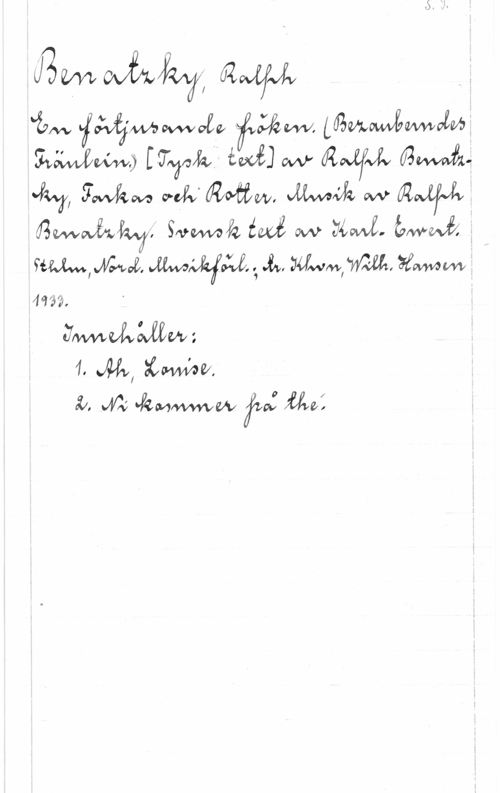 S. J.
Benatzky, Ralph
En förtjusande fröken. (Bezauberndes
Fräulein.) [Tysk text] av Ralph Benatz-
ky, Farkas och Rotter. Musik av Ralph
Benatzky. Svensk text av Karl-Ewert.
Sthlm, Nord. Musikförl.; Khvn, Wilh. Hansen
1933.
Innehåller:
1. Ah, Louise.
2. Ni kommer på thé.